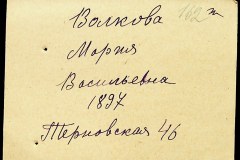 162 ж
Волкова
Мария
Васильевна
1897
Терновская 46